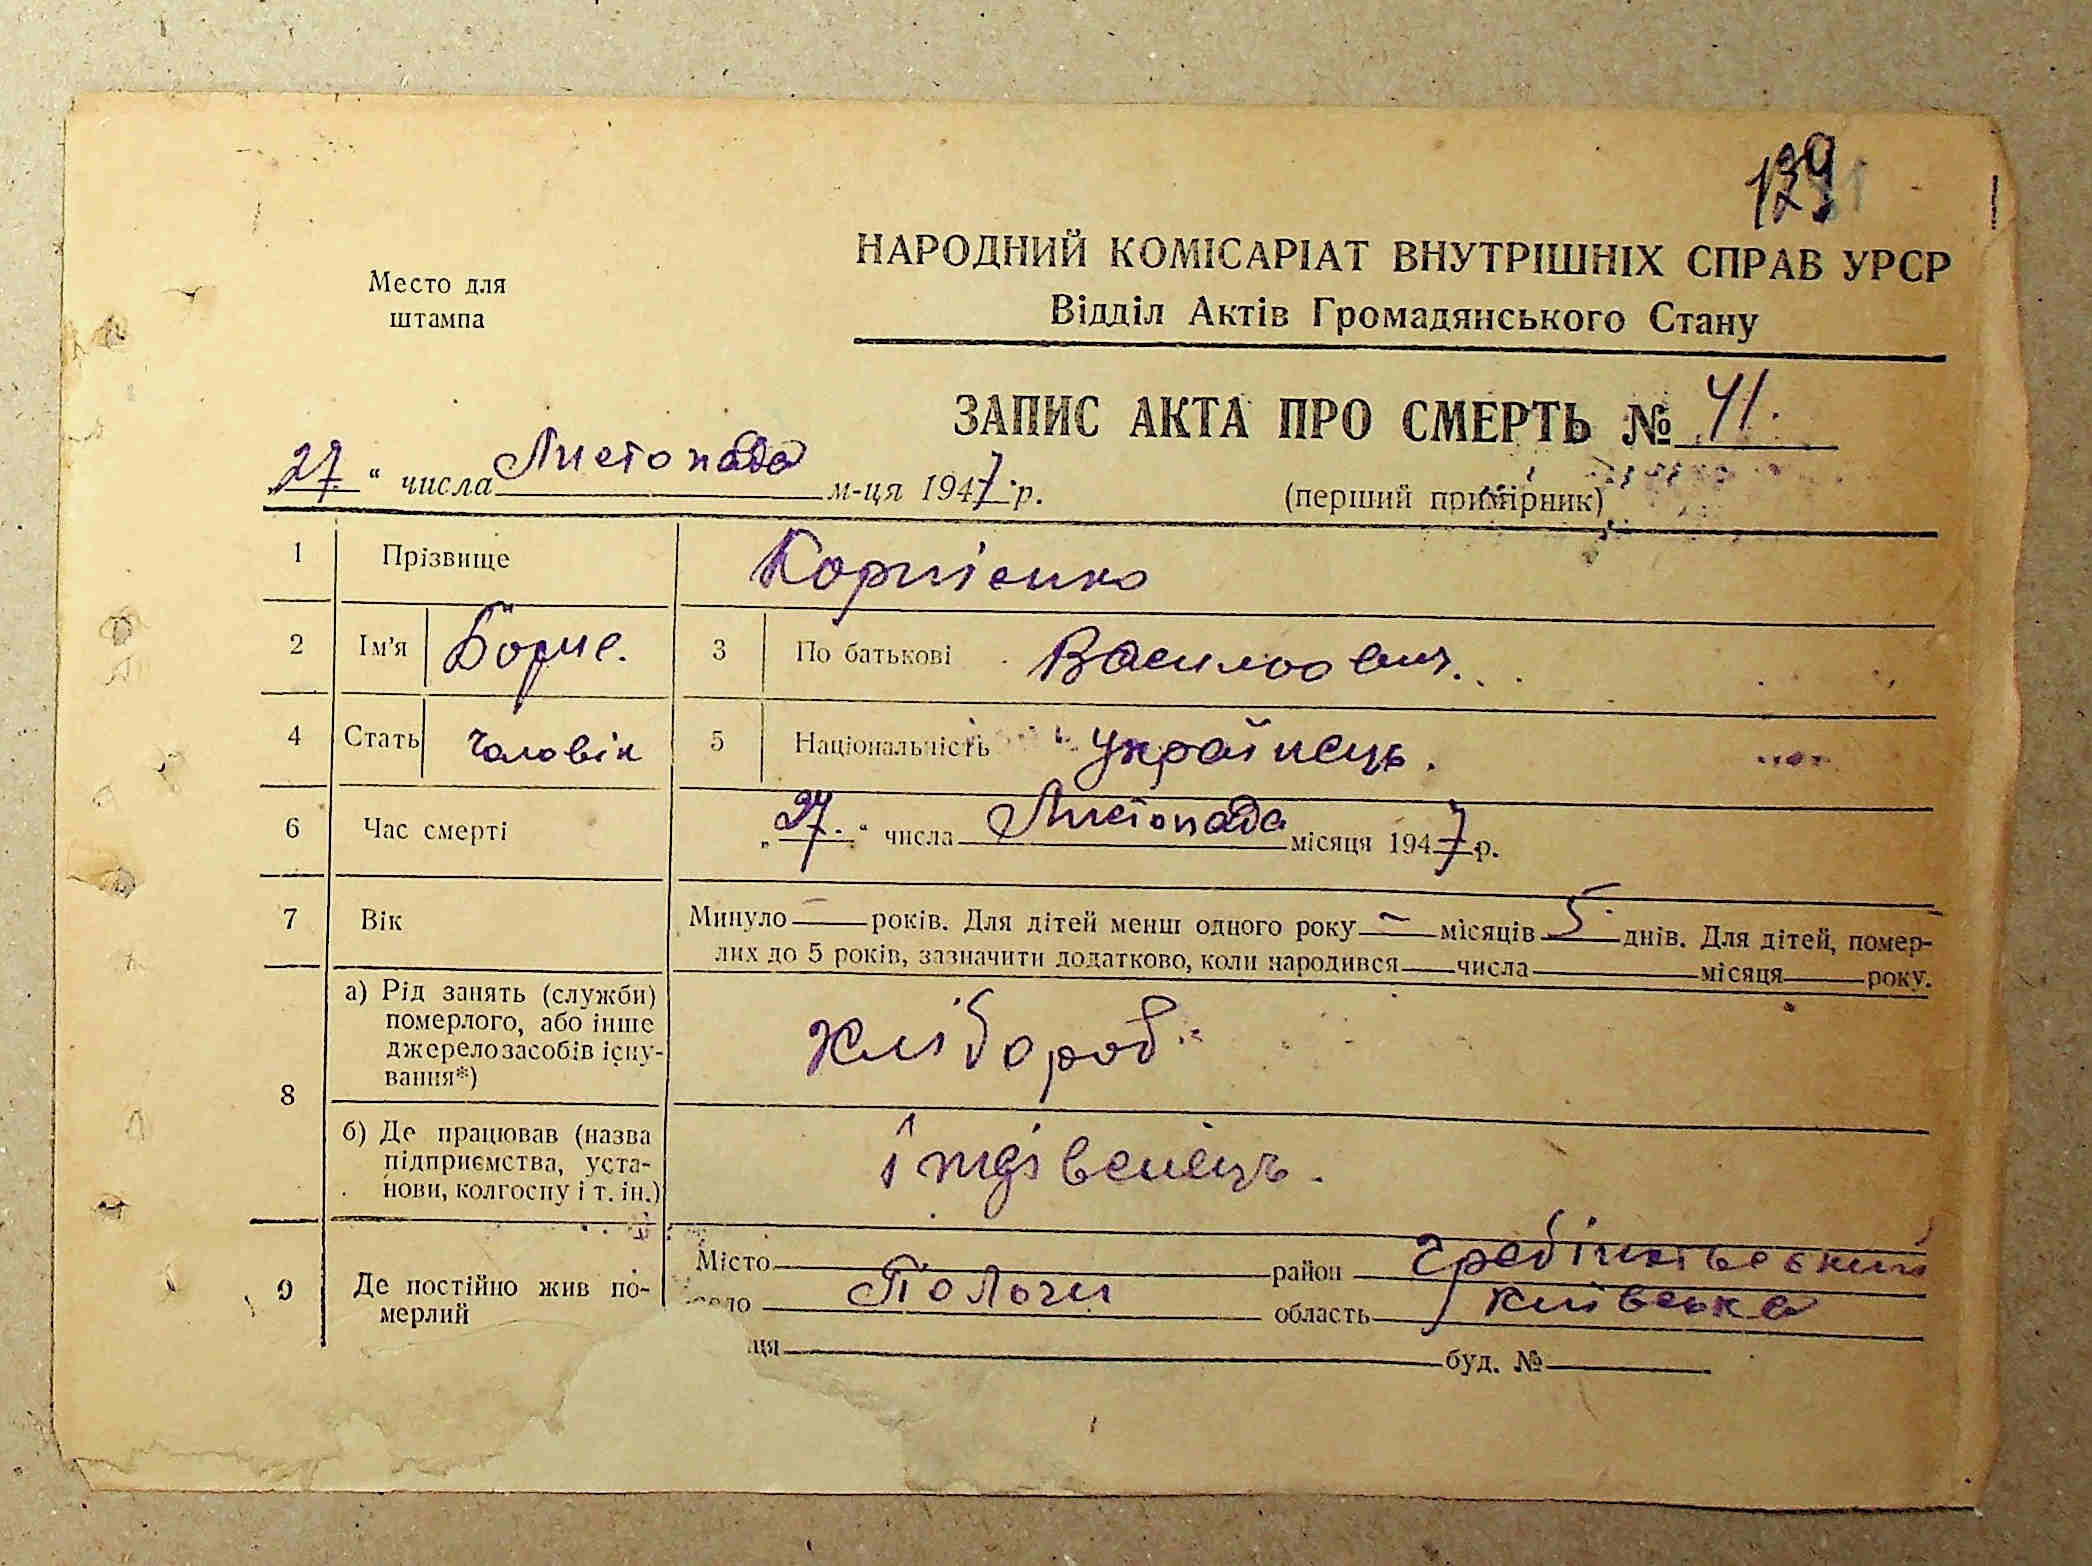 129
НАРОДНИЙ КОМІСАРІАТ ВНУТРІШНІХ СПРАВ УРСР
Место для
штампа
Відділ Актів Громадянського Стану
ЗАПИС АКТА ПРО СМЕРТЬ № 41.
27. " числа Листопада м-ця 1947 р.
(перший примірник)
1 Прізвище Корнієнко
2 Ім'я Борис. 3 По батькові Васильович.
4 Стать чоловік 5 Національність Українець.
6 Час смерті „27." числа Листопада місяця 1947 р.
7 Вік Минуло — років. Для дітей менш одного року — місяців 5 днів. Для дітей, помер-
лих до 5 років, зазначити додатково, коли народився числа місяця року.
8 а) Рід занять (служби)
померлого, або інше
джерело засобів існу-
вання*)
Хлібороб
б) Де працював (назва
підприємства, уста-
нови, колгоспу і т. ін.)
9 Де постійно жив по-
мерлий
Місто район Гребінківський
Пологи область Київська
ця буд. №